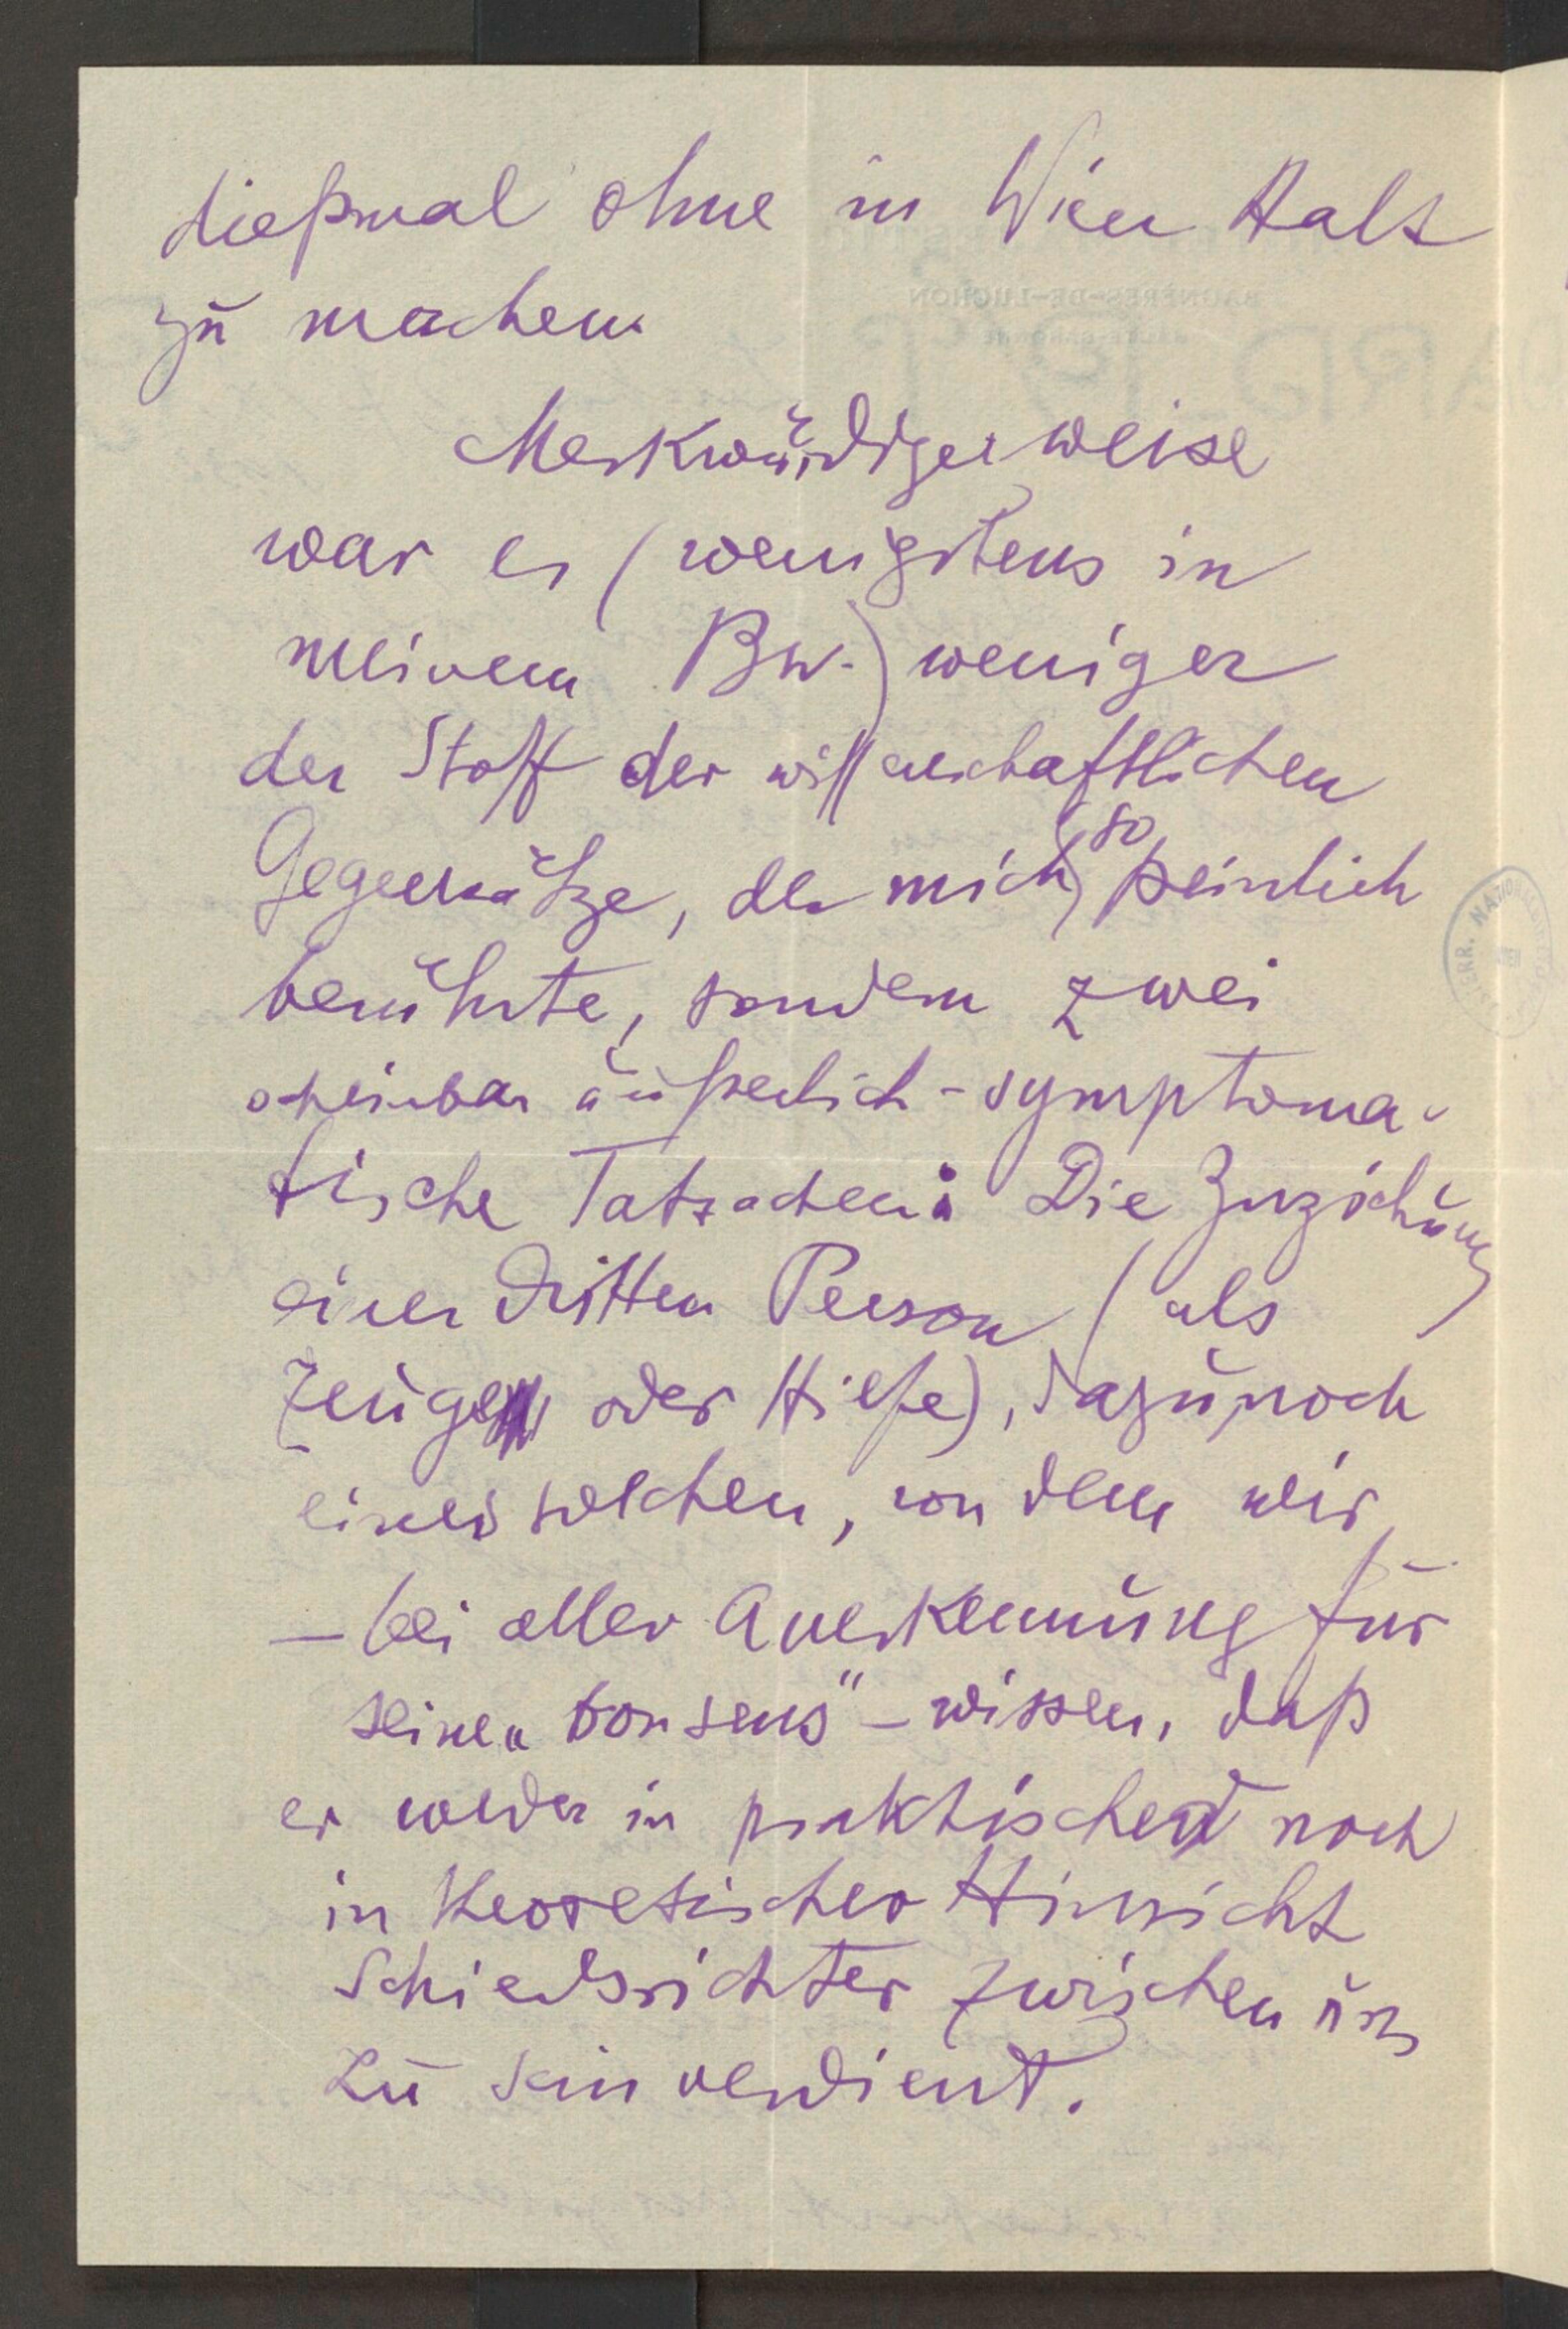 dießmal ohne in Wien Halt
zu machen.
Merkwürdigerweise
war es (wenigstens in
meinem Bw.) weniger
der Stoff der wissenschaftlichen
Gegensätze, der mich so peinlich
berührte, sondern zwei
scheinbar äußerlich-symptoma-
tische Tatsachen: Die Zuziehung
einer dritten Person (als
Zeuge oder Hilfe), dazu noch
eines solchen, von dem wir
– bei aller Anerkennung für
seinen „bon sens" – wissen, daß
er weder in praktischer noch
in theoretischer Hinsicht
Schiedsrichter zwischen uns
zu sein verdient.
BAGNÈRES-DE-LUCHON